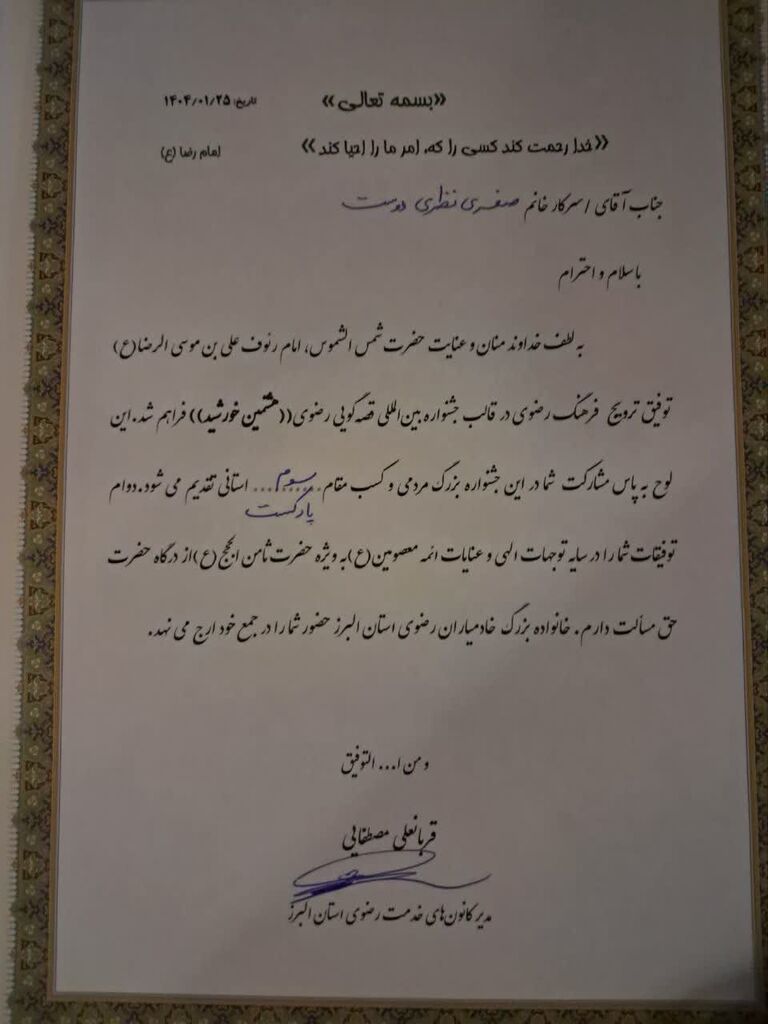 «بسمه تعالی»
تاریخ: ۱۴۰۴/۰۱/۲۵
«خدا رحمت کند کسی را که، امر ما را احیا کند»
امام رضا (ع)
جناب آقای / سرکار خانم صغری نظری دوست
باسلام و احترام
به لطف خداوند منان و عنایت حضرت شمس الشموس، امام رئوف علی بن موسی الرضا(ع)
توفیق ترویج فرهنگ رضوی در قالب جشنواره بین‌المللی قصه‌گویی رضوی((هشتمین خورشید)) فراهم شد. این
لوح به پاس مشارکت شما در این جشنواره بزرگ مردمی و کسب مقام... سوم ... استانی تقدیم می شود. دوام
پادکست
توفیقات شما را در سایه توجهات الهی و عنایات ائمه معصومین(ع) به ویژه حضرت ثامن الحجج(ع) از درگاه حضرت
حق مسألت دارم. خانواده بزرگ خادمیاران رضوی استان البرز حضور شما را در جمع خود ارج می نهد.
و من ا... التوفیق
قربانعلی مصطفایی
مدیر کانون‌های خدمت رضوی استان البرز